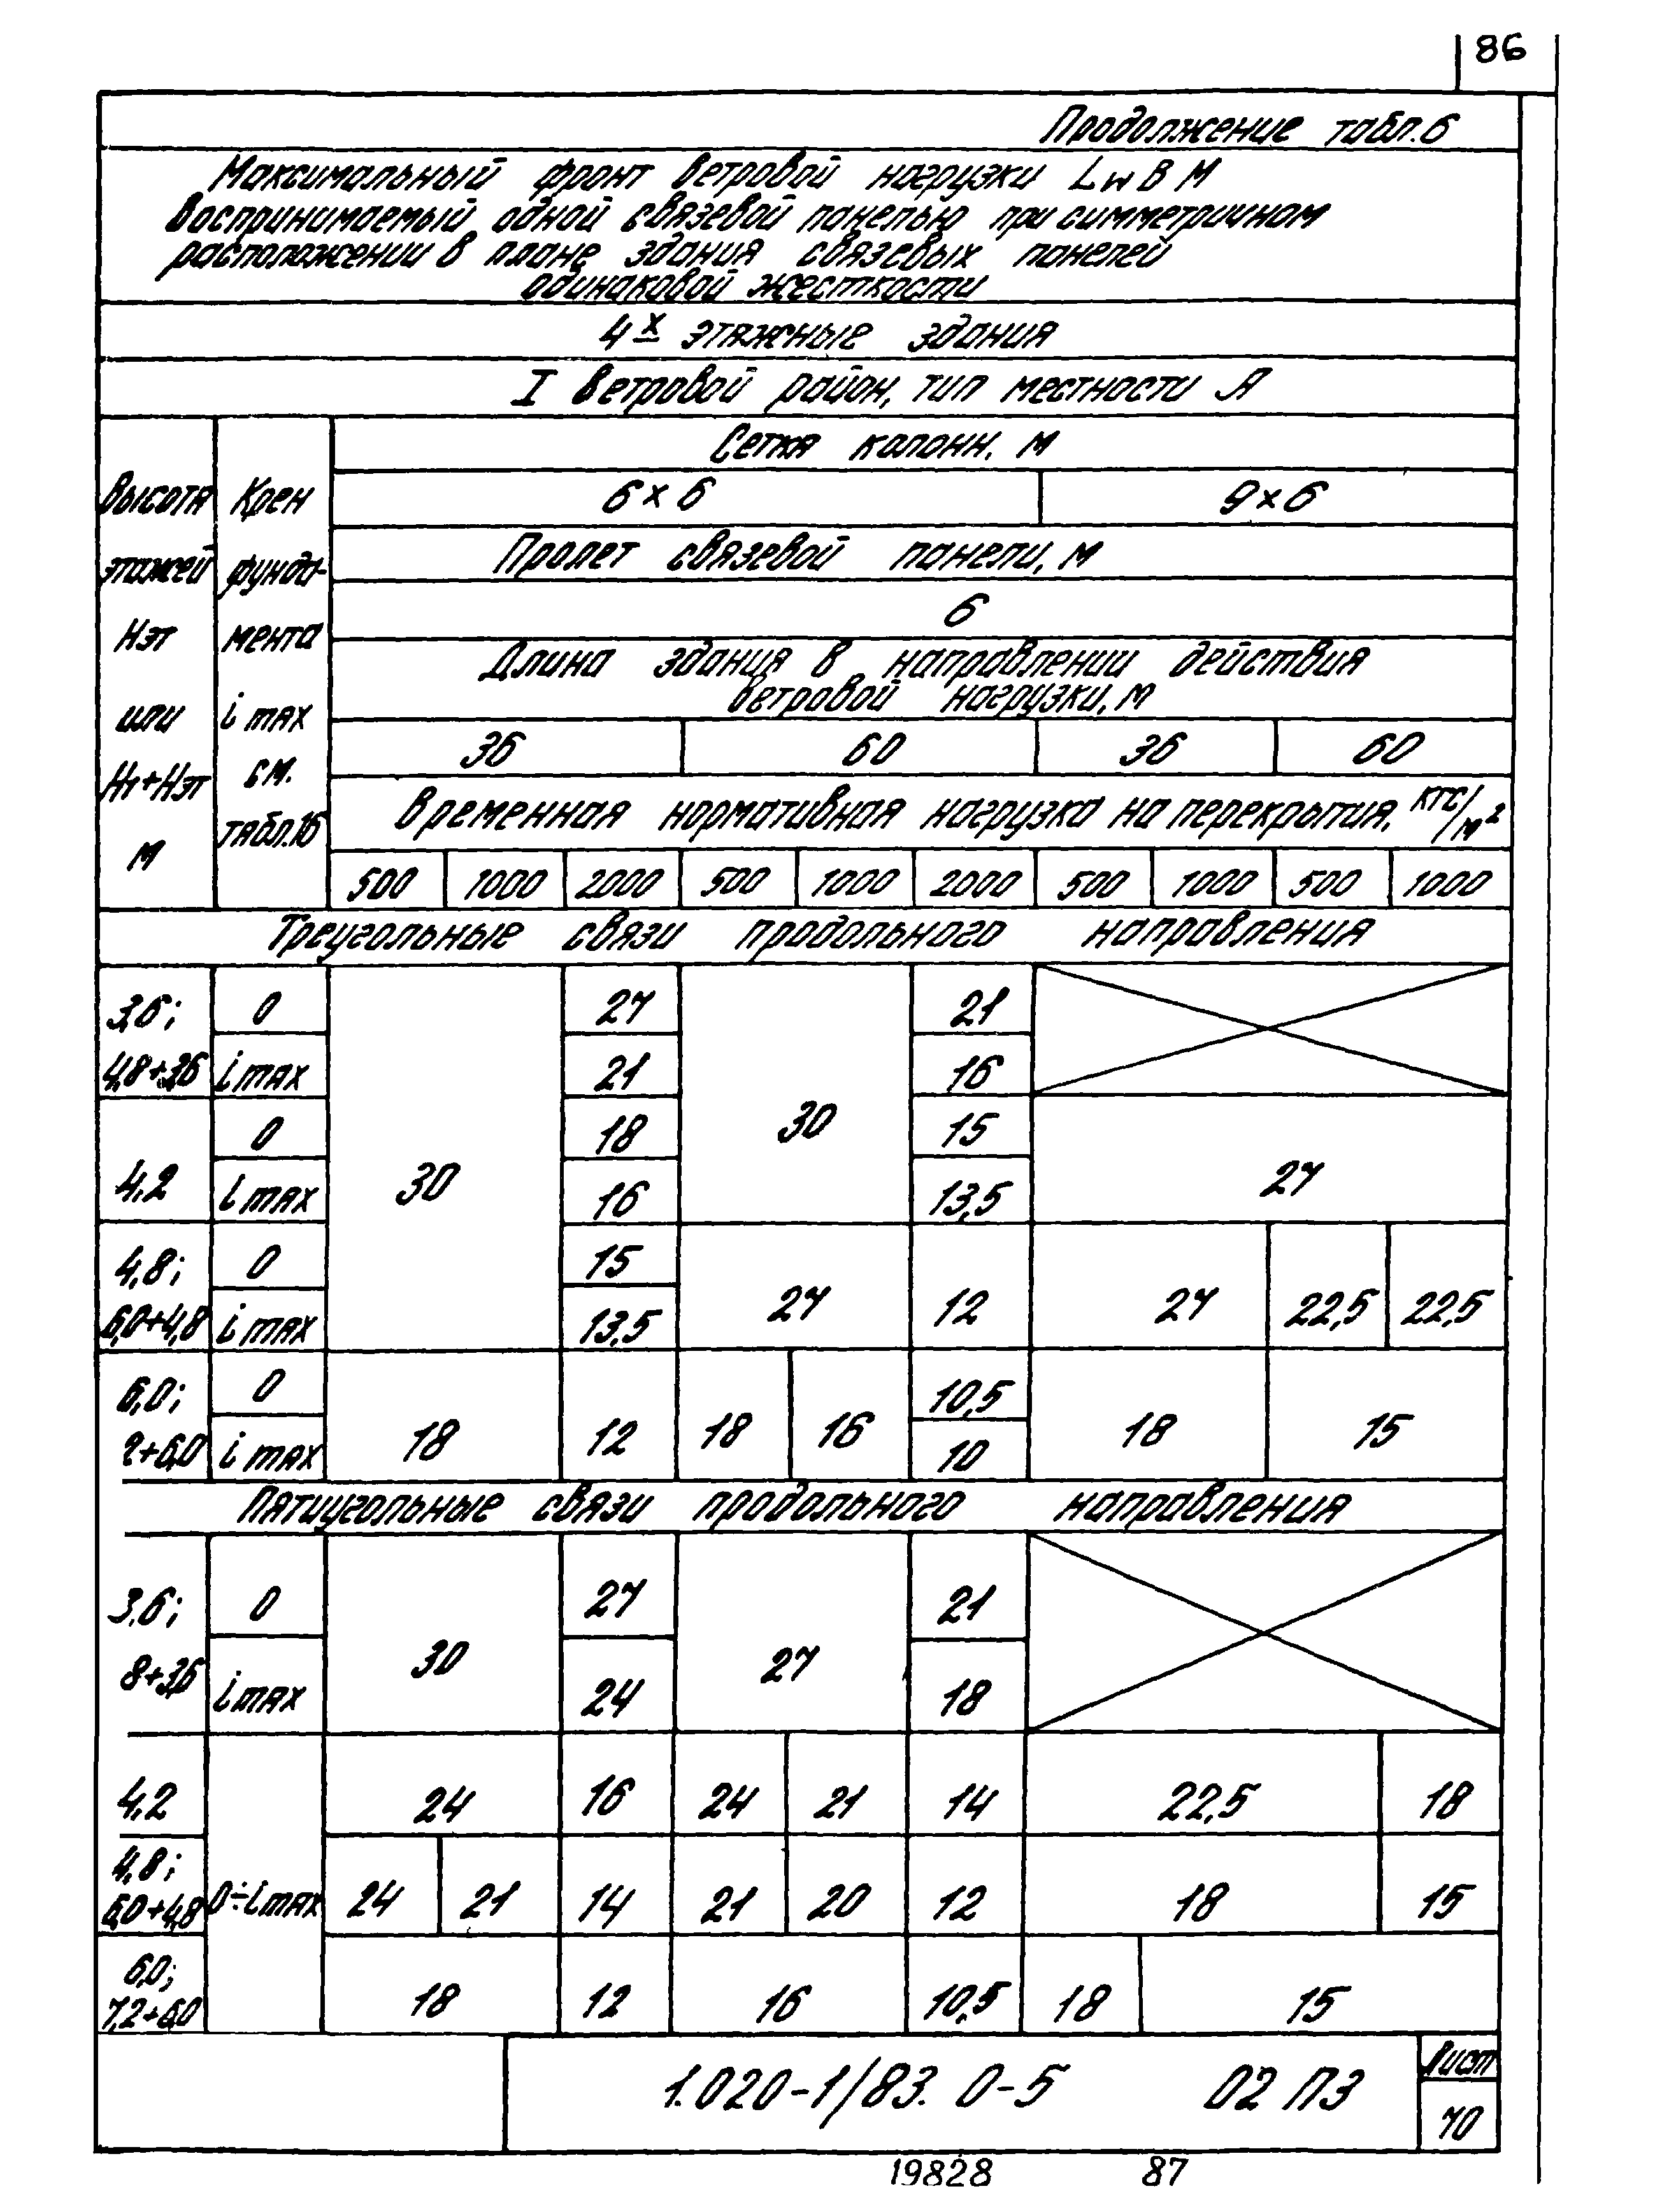 86
Продолжение табл.6
Максимальный фронт ветровой нагрузки Lw в м
воспринимаемый одной связевой панелью при симметричном
расположении в плане здания связевых панелей
одинаковой жесткости
4х этажные здания
I ветровой район, тип местности А
Высота этажей Нэт или Н1+Нэт м
Крен фунда-мента i max см. табл.16
Сетка колонн, м
6×6 9×6
Пролет связевой панели, м
6
Длина здания в направлении действия
ветровой нагрузки, м
36 60 36 60
Временная нормативная нагрузка на перекрытия, кгс/м²
500 1000 2000 500 1000 2000 500 1000 500 1000
Треугольные связи продольного направления
3,6; 0 27 21
4,8+3,6 i max 21 16
0 18 30 15
4,2 i max 30 16 13,5 27
4,8; 0 15
6,0+4,8 i max 13,5 27 12 27 22,5 22,5
6,0; 0 10,5
2+6,0 i max 18 12 18 16 10 18 15
Пятиугольные связи продольного направления
3,6; 0 27 21
8+3,6 i max 30 24 27 18
4,2 24 16 24 21 14 22,5 18
4,8;
6,0+4,8 0÷i max 24 21 14 21 20 12 18 15
6,0;
7,2+6,0 18 12 16 10,5 18 15
1.020-1/83. 0-5 02 ПЗ
Лист
70
19828 87